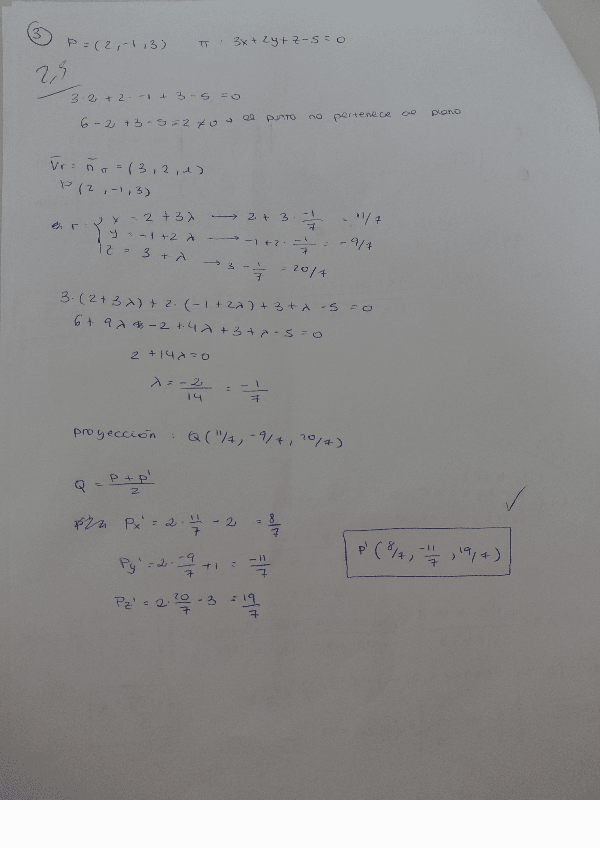 3
P = (2, -1, 3) π · 3x + 2y + z - 5 = 0
2,5
3·2 + 2·-1 + 3 - 5 = 0
6 - 2 + 3 - 5 = 2 ≠ 0 → el punto no pertenece al plano
Vr = nπ = (3, 2, 1)
P (2, -1, 3)
r: { x = 2 + 3λ → 2 + 3·-1/7 = 11/7
y = -1 + 2λ → -1 + 2·-1/7 = -9/7
z = 3 + λ → 3 - 1/7 = 20/7
3·(2 + 3λ) + 2·(-1 + 2λ) + 3 + λ - 5 = 0
6 + 9λ - 2 + 4λ + 3 + λ - 5 = 0
2 + 14λ = 0
λ = -2/14 = -1/7
proyección : Q (11/7, -9/7, 20/7)
Q = P + P'/2
Px' = 2·11/7 - 2 = 8/7
Py' = 2·-9/7 + 1 = -11/7
Pz' = 2·20/7 - 3 = 19/7
P' (8/7, -11/7, 19/7)